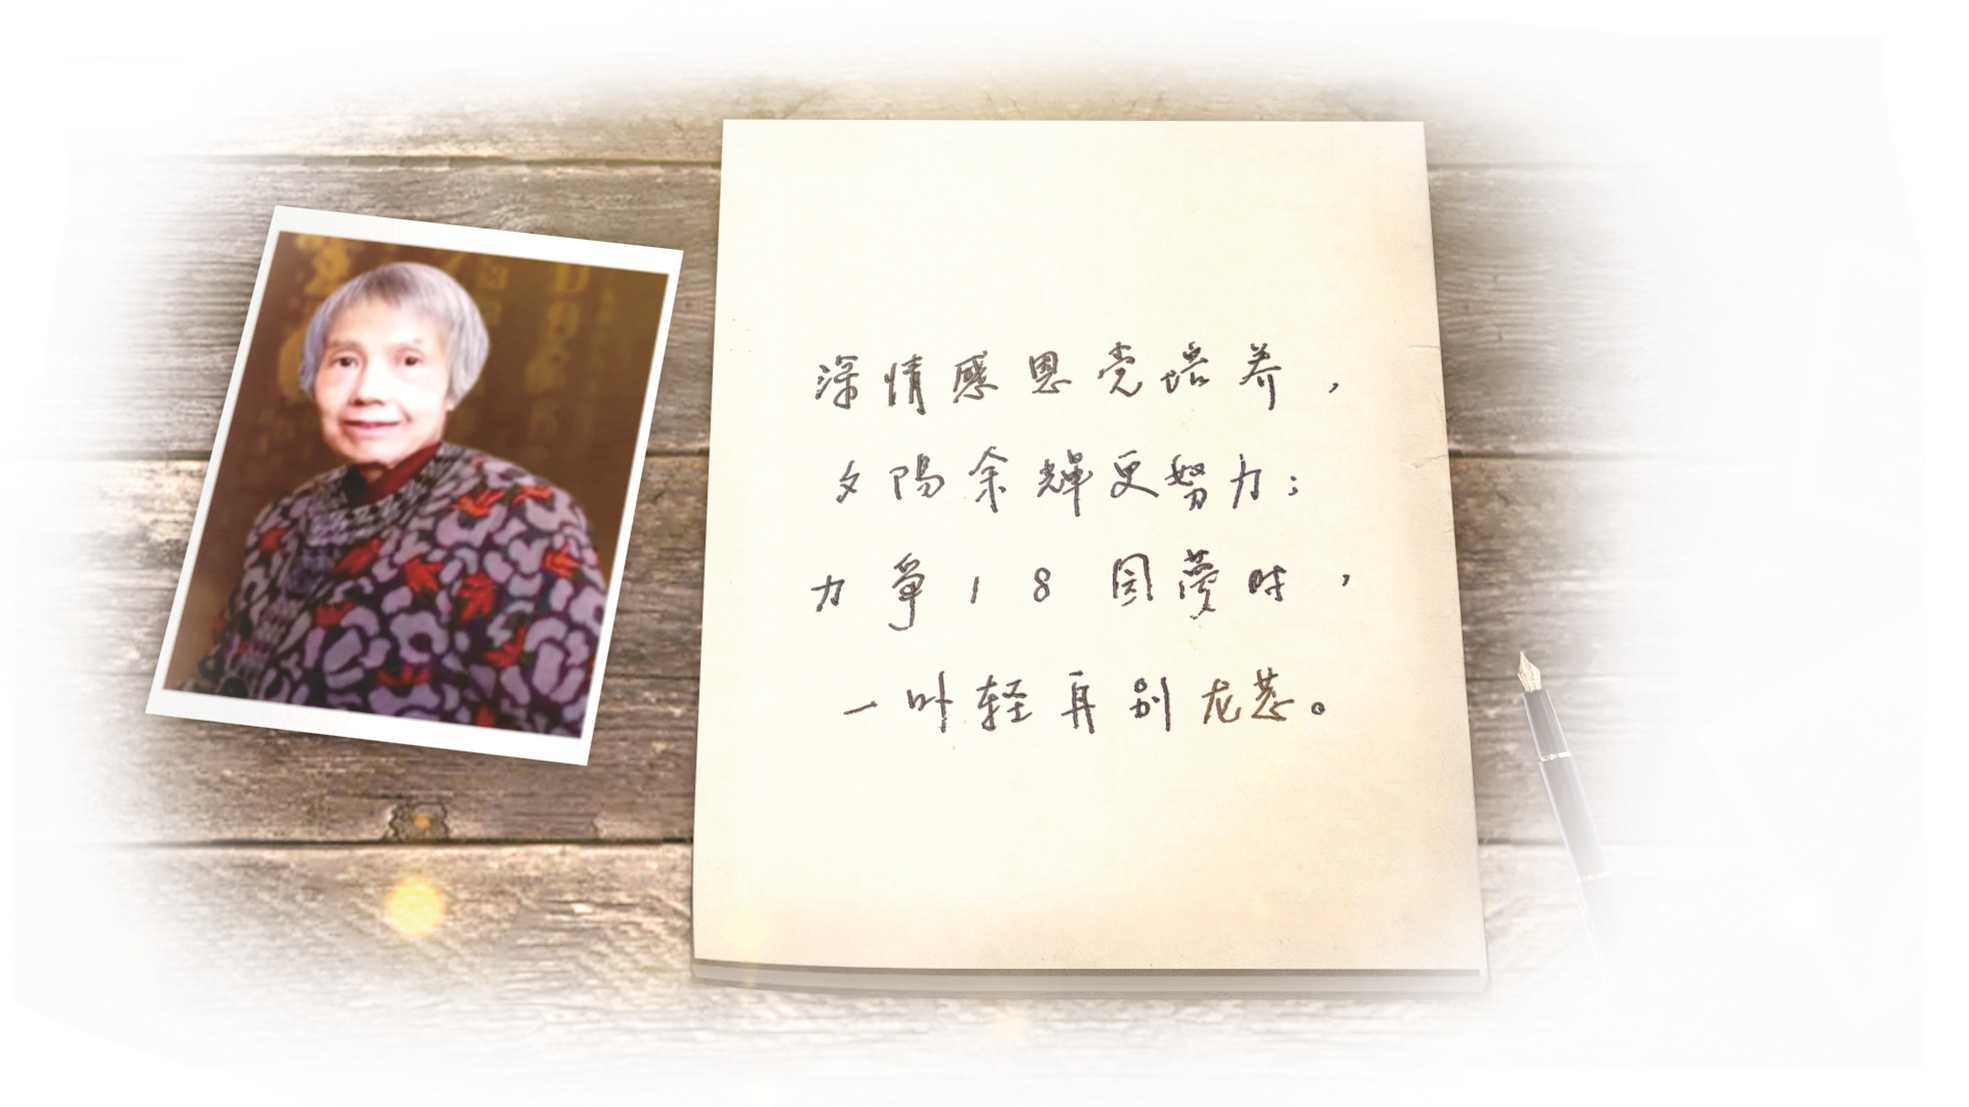 深情感恩党培养，
夕陽余輝更努力；
力爭18圆夢时，
一叶轻舟别龙。